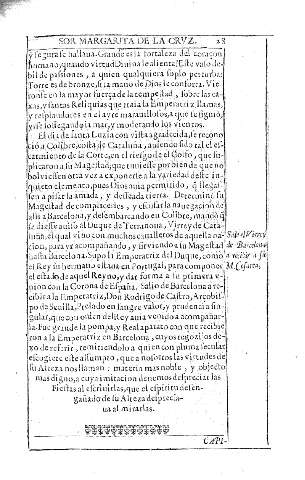 SOR MARGARITA DE LA CRVZ. 28
y segura se hallaua. Grande es la fortaleza del coraçon
humano, quando virtud Diuina le alienta! Este valo de-
bil de passiones, a quien qualquiera soplo perturba,
Torre es de bronce, si la mano de Dios le conforta. Vie-
ronse en la mayor fuerça de la tempestad, sobre las ca-
xas, y santas Reliquias que traia la Emperatriz, llamas,
y resplandores en el ayre marauillosos, a que se siguió,
yrse sossegando la mar, y moderando los vientos.
El dia de santa Luzia con vista agradecida, se recono-
cio Colibre, costa de Cataluña, auiendo sido tal el es-
carmiento de la Corte, en el riesgo de el Golfo, que su-
plicaron a su Magestad, que tuuiesse por bien de que no
boluiessen otra vez a exponerse a la variedad deste in-
quieto elemento, pues Dios auia permitido, q llegas-
sen a pisar la amada, y desseada tierra. Determinó su
Magestad de complacerles, y escusar la nauegacion de
alli a Barcelona, y desembarcando en Colibre, mandò q
se diesse auiso al Duque de Terranoua, Virrey de Cata-
luña, el qual vino con muchos caualleros de aquella na-
cion, para yr acompañando, y siruiendo a su Magestad
hasta Barcelona. Supo la Emperatriz del Duque, como
el Rey su hermano estaua en Portugal, para componer
el estado de aquel Reyno, y dar forma a su primera v-
nion con la Corona de España. Salio de Barcelona a re-
cibir a la Emperatriz, Don Rodrigo de Castro, Arçobis-
po de Seuilla, Prelado en sangre, valor, y prudencia sin-
gular, que con orden del Rey auia venido a acompañar-
la. Fue grande la pompa, y Real aparato con que recibie-
ron a la Emperatriz en Barcelona, cuyos regozijos de-
xo de referir, remitiendolo a quien con pluma secular
escogiere este assumpto, que a nosotros las virtudes de
su Alteza nos llaman: materia mas noble, y objecto
mas digno, a cuya imitacion deuemos despreciar las
Fiestas al escriuirlas, que el espiritu desen-
gañado de su Alteza desprecia-
ua al mirarlas.
Sale el Virrey
de Barcelona
a recibir a su
M. Cesarea.
CAPI-